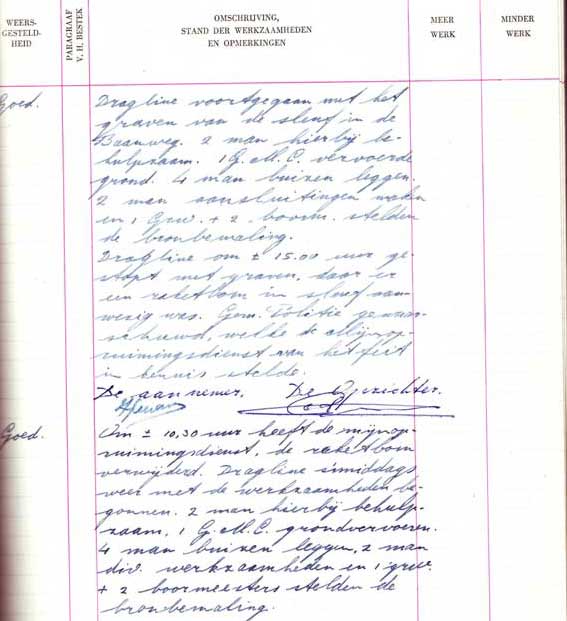 WEERS-
GESTELD-
HEID
PARAGRAAF
V. H. BESTEK
OMSCHRIJVING,
STAND DER WERKZAAMHEDEN
EN OPMERKINGEN
MEER
WERK
MINDER
WERK
Goed.
Dragline voortgegaan met het
graven van de sleuf in de
Baanweg. 2 man hierbij be-
hulpzaam. 1 G.M.C. vervoerde
grond. 4 man buizen leggen.
2 man aansluitingen maken
en 1 Gruw. + 2 boorm. stelden
de bronbemaling.
Dragline om ± 15.00 uur ge-
stopt met graven, daar er
een raketbom in sleuf aan-
wezig was. Gem. Politie gewaar-
schuwd, welke de mijnop-
ruimingsdienst van het feit
in kennis stelde.
De aannemer. De Opzichter.
Goed.
Om ± 10,30 uur heeft de mijnop-
ruimingsdienst, de raketbom
verwijderd. Dragline smiddags
weer met de werkzaamheden be-
gonnen. 2 man hierbij behulp-
zaam. 1 G.M.C. grondvervoeren.
4 man buizen leggen, 2 man
div. werkzaamheden en 1 gruw.
+ 2 boormeesters stelden de
bronbemaling.